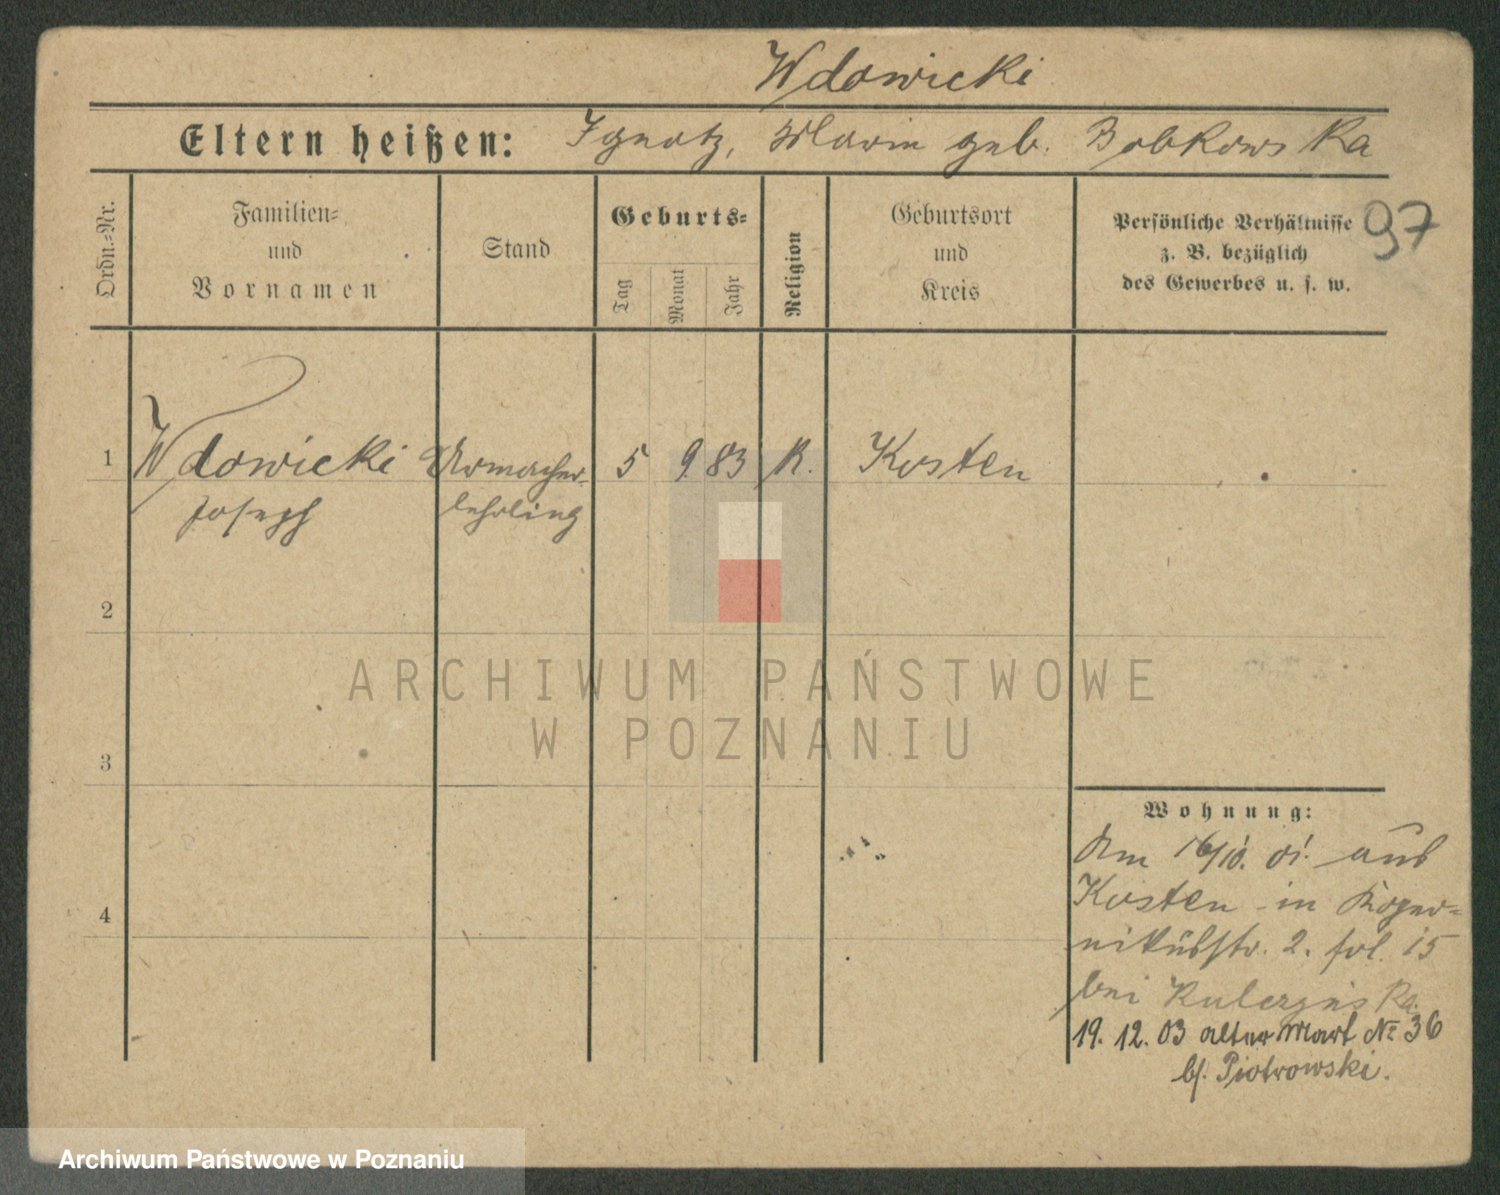 Wdowicki
Eltern heißen: Ignatz, Marie geb. Bobkowska
Ordn.=Nr.
Familien=
und
Vornamen
Stand
Geburts=
Tag
Monat
Jahr
Religion
Geburtsort
und
Kreis
Persönliche Verhältnisse
z. B. bezüglich
des Gewerbes u. s. w.
97
1 Wdowicki Urmacher 5 9. 83 K. Kosten
Joseph lehrling
2
3
4
ARCHIWUM PAŃSTWOWE
W POZNANIU
Wohnung:
Am 16/10. 01. aus
Kosten in Koper=
nikusstr. 2. frl. 15
bei Kulczynska
19. 12. 03 alter Markt No 36
bf. Piotrowski.
Archiwum Państwowe w Poznaniu